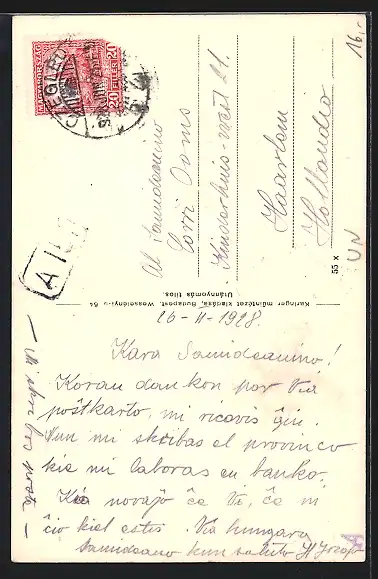 16,-
MAGYARORSZÁG
20 FILLÉR 20
CZEGLÉD
Al Samideanino
Corri Ooms
Kinderhuis-vest 21.
Haarlem
Hollando
UN
55 x
Karinger műintézet kiadása, Budapest, Wesselényi-u 64
Utánnyomás tilos.
26-II-1928.
Kara Samideanino!
Koran dankon por Via
poŝtkarto, mi ricevis ĝin.
Nun mi skribas el provinco
kie mi laboras en banko.
Kio novaĵo ĉe Vi, ĉe ni
ĉio kiel estis. Via hungara
samideano kun saluto